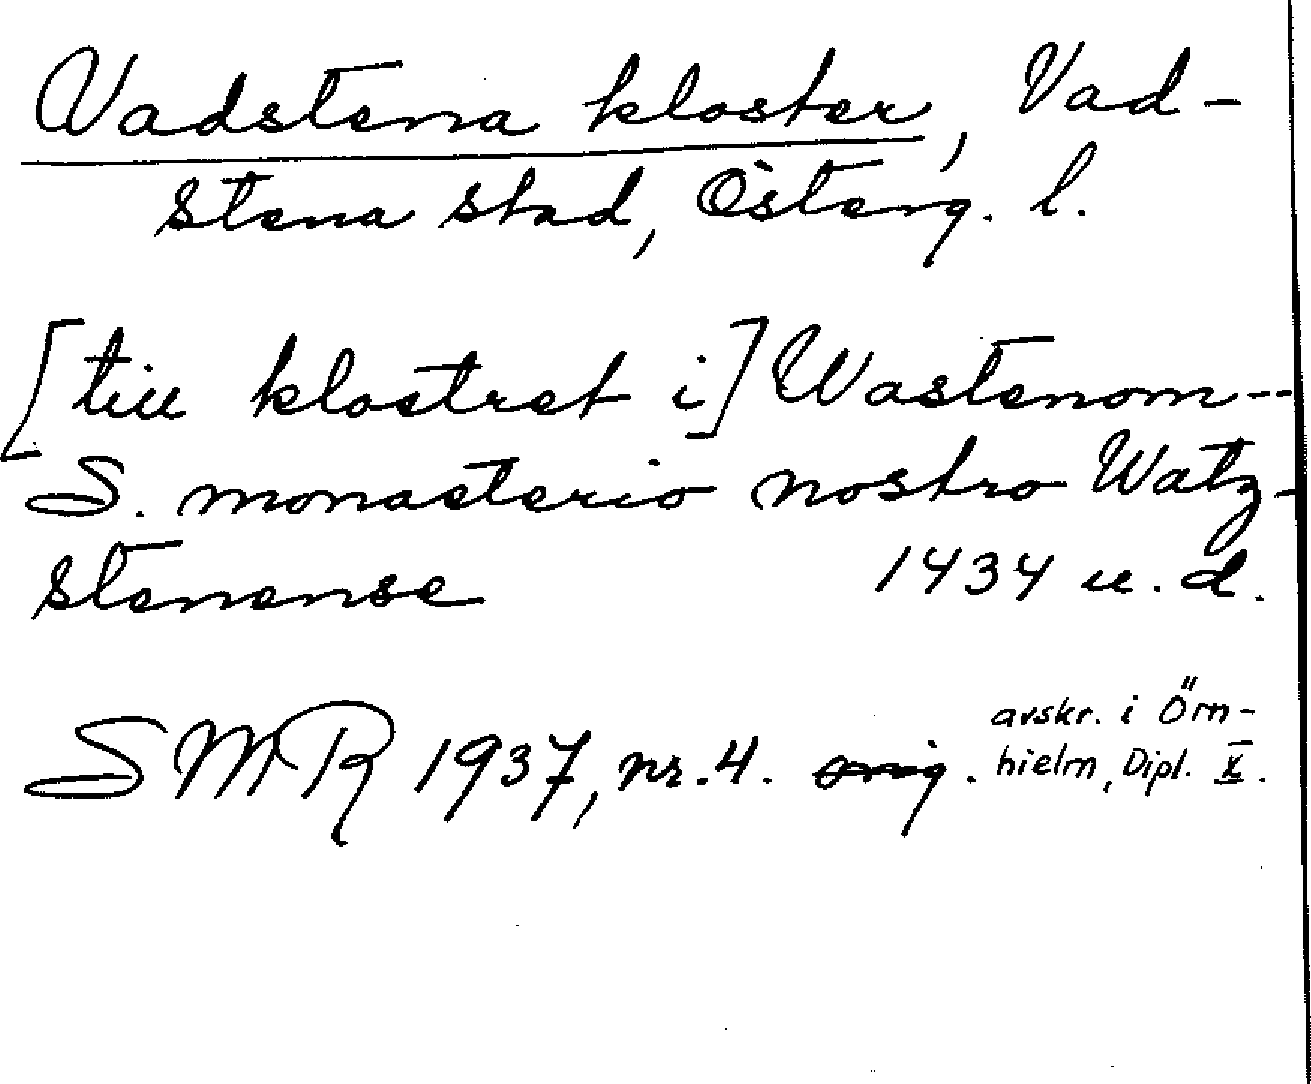 Vadstena kloster, Vad-
stena stad, Österg. l.
[till klostret i] Wastenom--
S. monasterio nostro Watz-
stenense 1434 u. d.
SMR 1937, nr. 4. orig. avskr. i Örn-
hielm, Dipl. X.